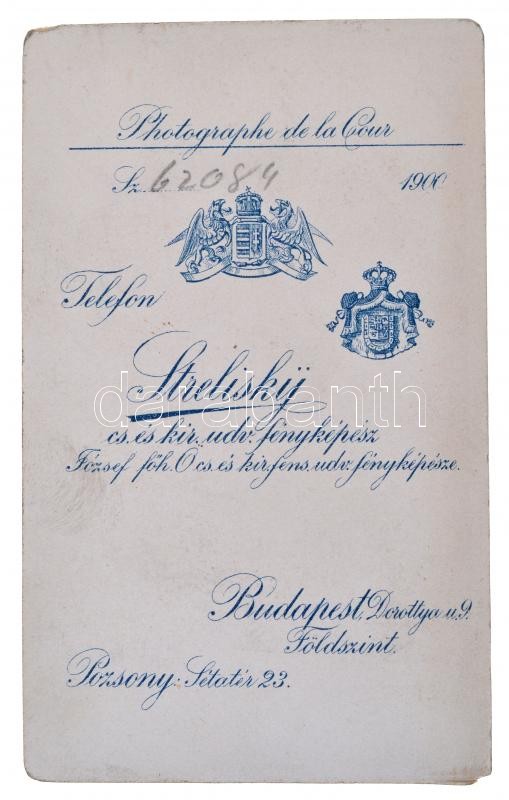 Photographe de la Cour
Sz. 62084 1900
Telefon
Streliskÿ
darabanth
cs. és kir. udv. fényképész
József főh. Ő cs. és kir. fens. udv. fényképésze.
Budapest, Dorottya u. 9.
Földszint.
Pozsony: Sétatér 23.